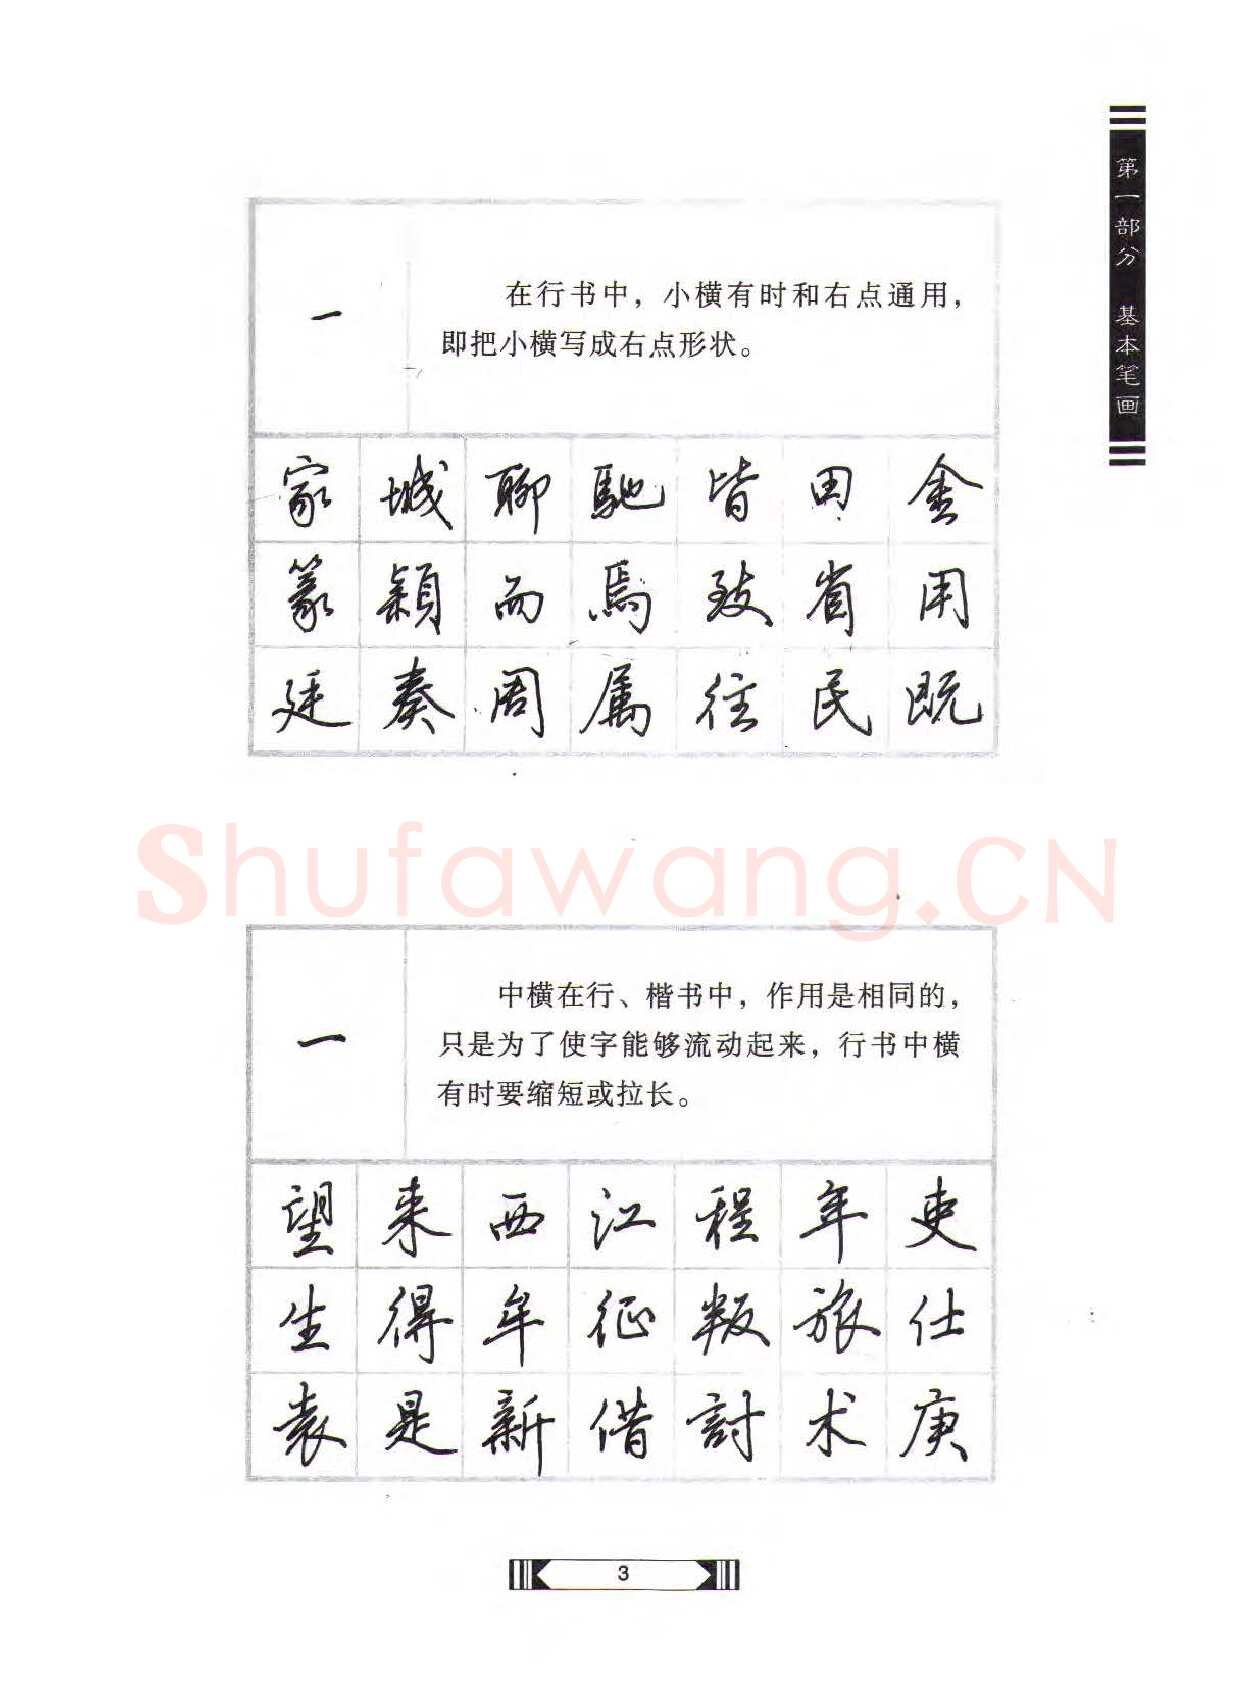 第一部分 基本笔画
一
在行书中，小横有时和右点通用，
即把小横写成右点形状。
家 城 聊 馳 皆 田 金
篆 颖 而 焉 致 省 用
廷 奏 周 属 往 民 既
Shufawang.CN
一
中横在行、楷书中，作用是相同的，
只是为了使字能够流动起来，行书中横
有时要缩短或拉长。
望 来 西 江 程 年 吏
生 得 牟 征 叛 旅 仕
袁 是 新 借 討 术 庚
3